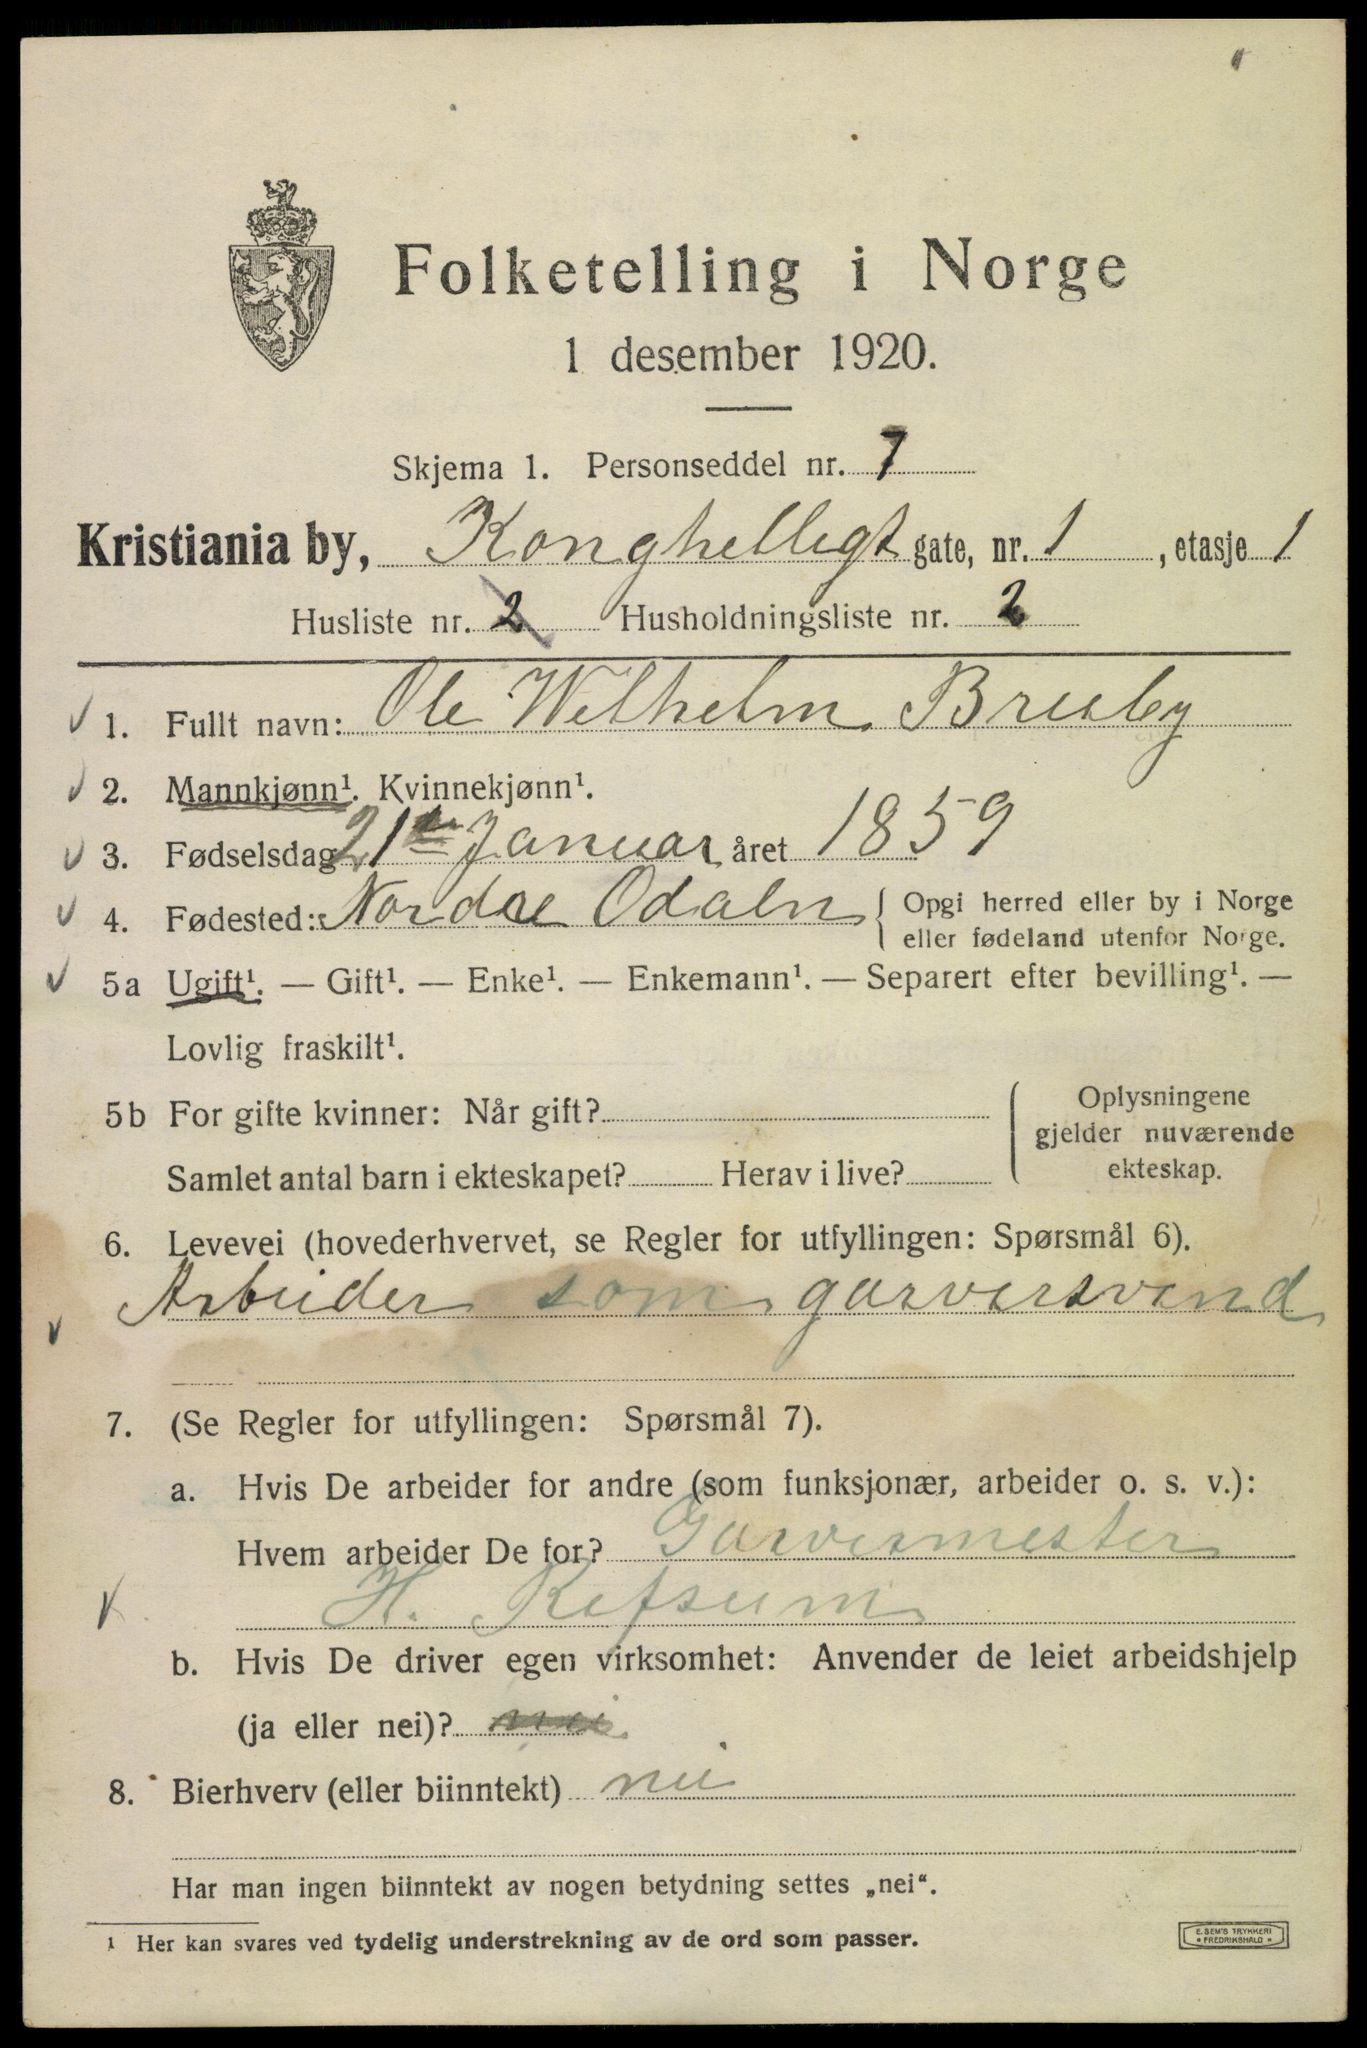 Folketelling i Norge
1 desember 1920.
Skjema 1. Personseddel nr. 7
Kristiania by, Konghellegt gate, nr. 1, etasje 1
Husliste nr. 2 Husholdningsliste nr. 2
1. Fullt navn: Ole Wilhelm Brusby
2. Mannkjønn¹. Kvinnekjønn¹.
3. Fødselsdag 21de Januar året 1859
4. Fødested: Nordre Odalen { Opgi herred eller by i Norge
eller fødeland utenfor Norge.
5a Ugift¹. — Gift¹. — Enke¹. — Enkemann¹. — Separert efter bevilling¹. —
Lovlig fraskilt¹.
5b For gifte kvinner: Når gift? ( Oplysningene
gjelder nuværende
Samlet antal barn i ekteskapet? Herav i live? ekteskap.
6. Levevei (hovederhvervet, se Regler for utfyllingen: Spørsmål 6).
Arbeider som garversvend
7. (Se Regler for utfyllingen: Spørsmål 7).
a. Hvis De arbeider for andre (som funksjonær, arbeider o. s. v.):
Hvem arbeider De for? Garvermester
H. Refsum
b. Hvis De driver egen virksomhet: Anvender de leiet arbeidshjelp
(ja eller nei)? nei
8. Bierhverv (eller biinntekt) nei
Har man ingen biinntekt av nogen betydning settes „nei“.
1 Her kan svares ved tydelig understrekning av de ord som passer.
E. SEM'S TRYKKERI
FREDRIKSHALD